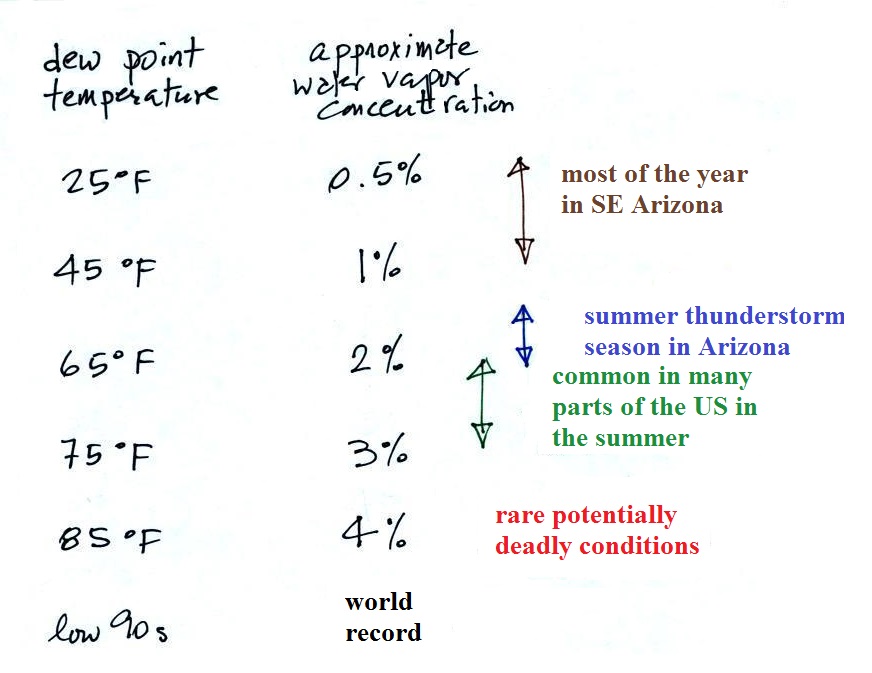 dew point
temperature
approximate
water vapor
concentration
25°F
0.5%
most of the year
in SE Arizona
45 °F
1%
summer thunderstorm
season in Arizona
65° F
2%
common in many
parts of the US in
the summer
75 °F
3%
85 °F
4%
rare potentially
deadly conditions
low 90s
world
record